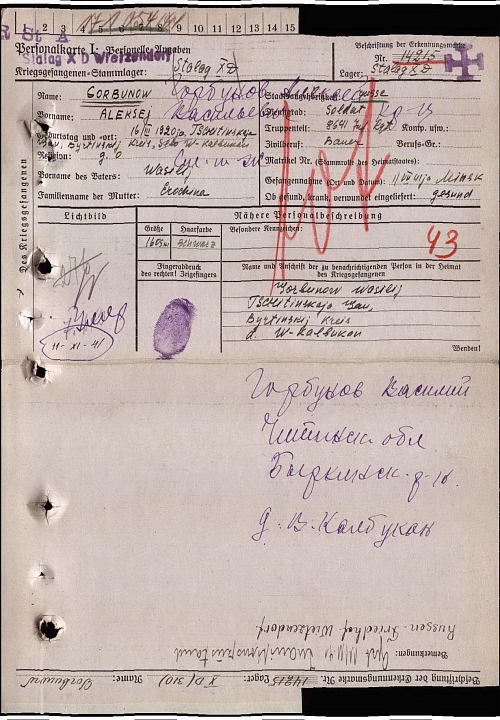 1 2 3 4 5 6 7 8 9 10 11 12 13 14 15
Personalkarte I: Personelle Angaben
Stalag X D Wietzendorf
Kriegsgefangenen-Stammlager: Stalag XD
Beschriftung der Erkennungsmarke
Nr. 14215
Lager: Stalag XD
Des Kriegsgefangenen
Name: GORBUNOW
Горбунов Алексей
Staatsangehörigkeit: Russe
Vorname: ALEKSEJ
Васильевич
Dienstgrad: Soldat
Geburtstag und -ort: 16/III 1920
Truppenteil: 8641 Inf. Rgt. Komp. usw.:
Zivilberuf: Bauer Berufs-Gr.:
Religion: g. o.
Matrikel Nr. (Stammrolle des Heimatstaates):
Vorname des Vaters: Wasilij
Gefangennahme (Ort und Datum): Minsk
Familienname der Mutter:
Ob gesund, krank, verwundet eingeliefert: gesund
Lichtbild
Nähere Personalbeschreibung
Größe Haarfarbe Besondere Kennzeichen:
schwarz
43
tot
Fingerabdruck
des rechten! Zeigefingers
Name und Anschrift der zu benachrichtigenden Person in der Heimat
des Kriegsgefangenen
Gorbunow Wasilij
Tschitinskaja
Byrtinskij Kreis
d. W-Kalbukan
11-XI-41
Wenden!
Горбунов Василий
Читинск обл
Быркинск. р-н.
д. В-Калбукан
Russen-Friedhof Wietzendorf
Bemerkungen:
Beschriftung der Erkennungsmarke Nr. 14215 Lager: X D (310) Name: Gorbunow